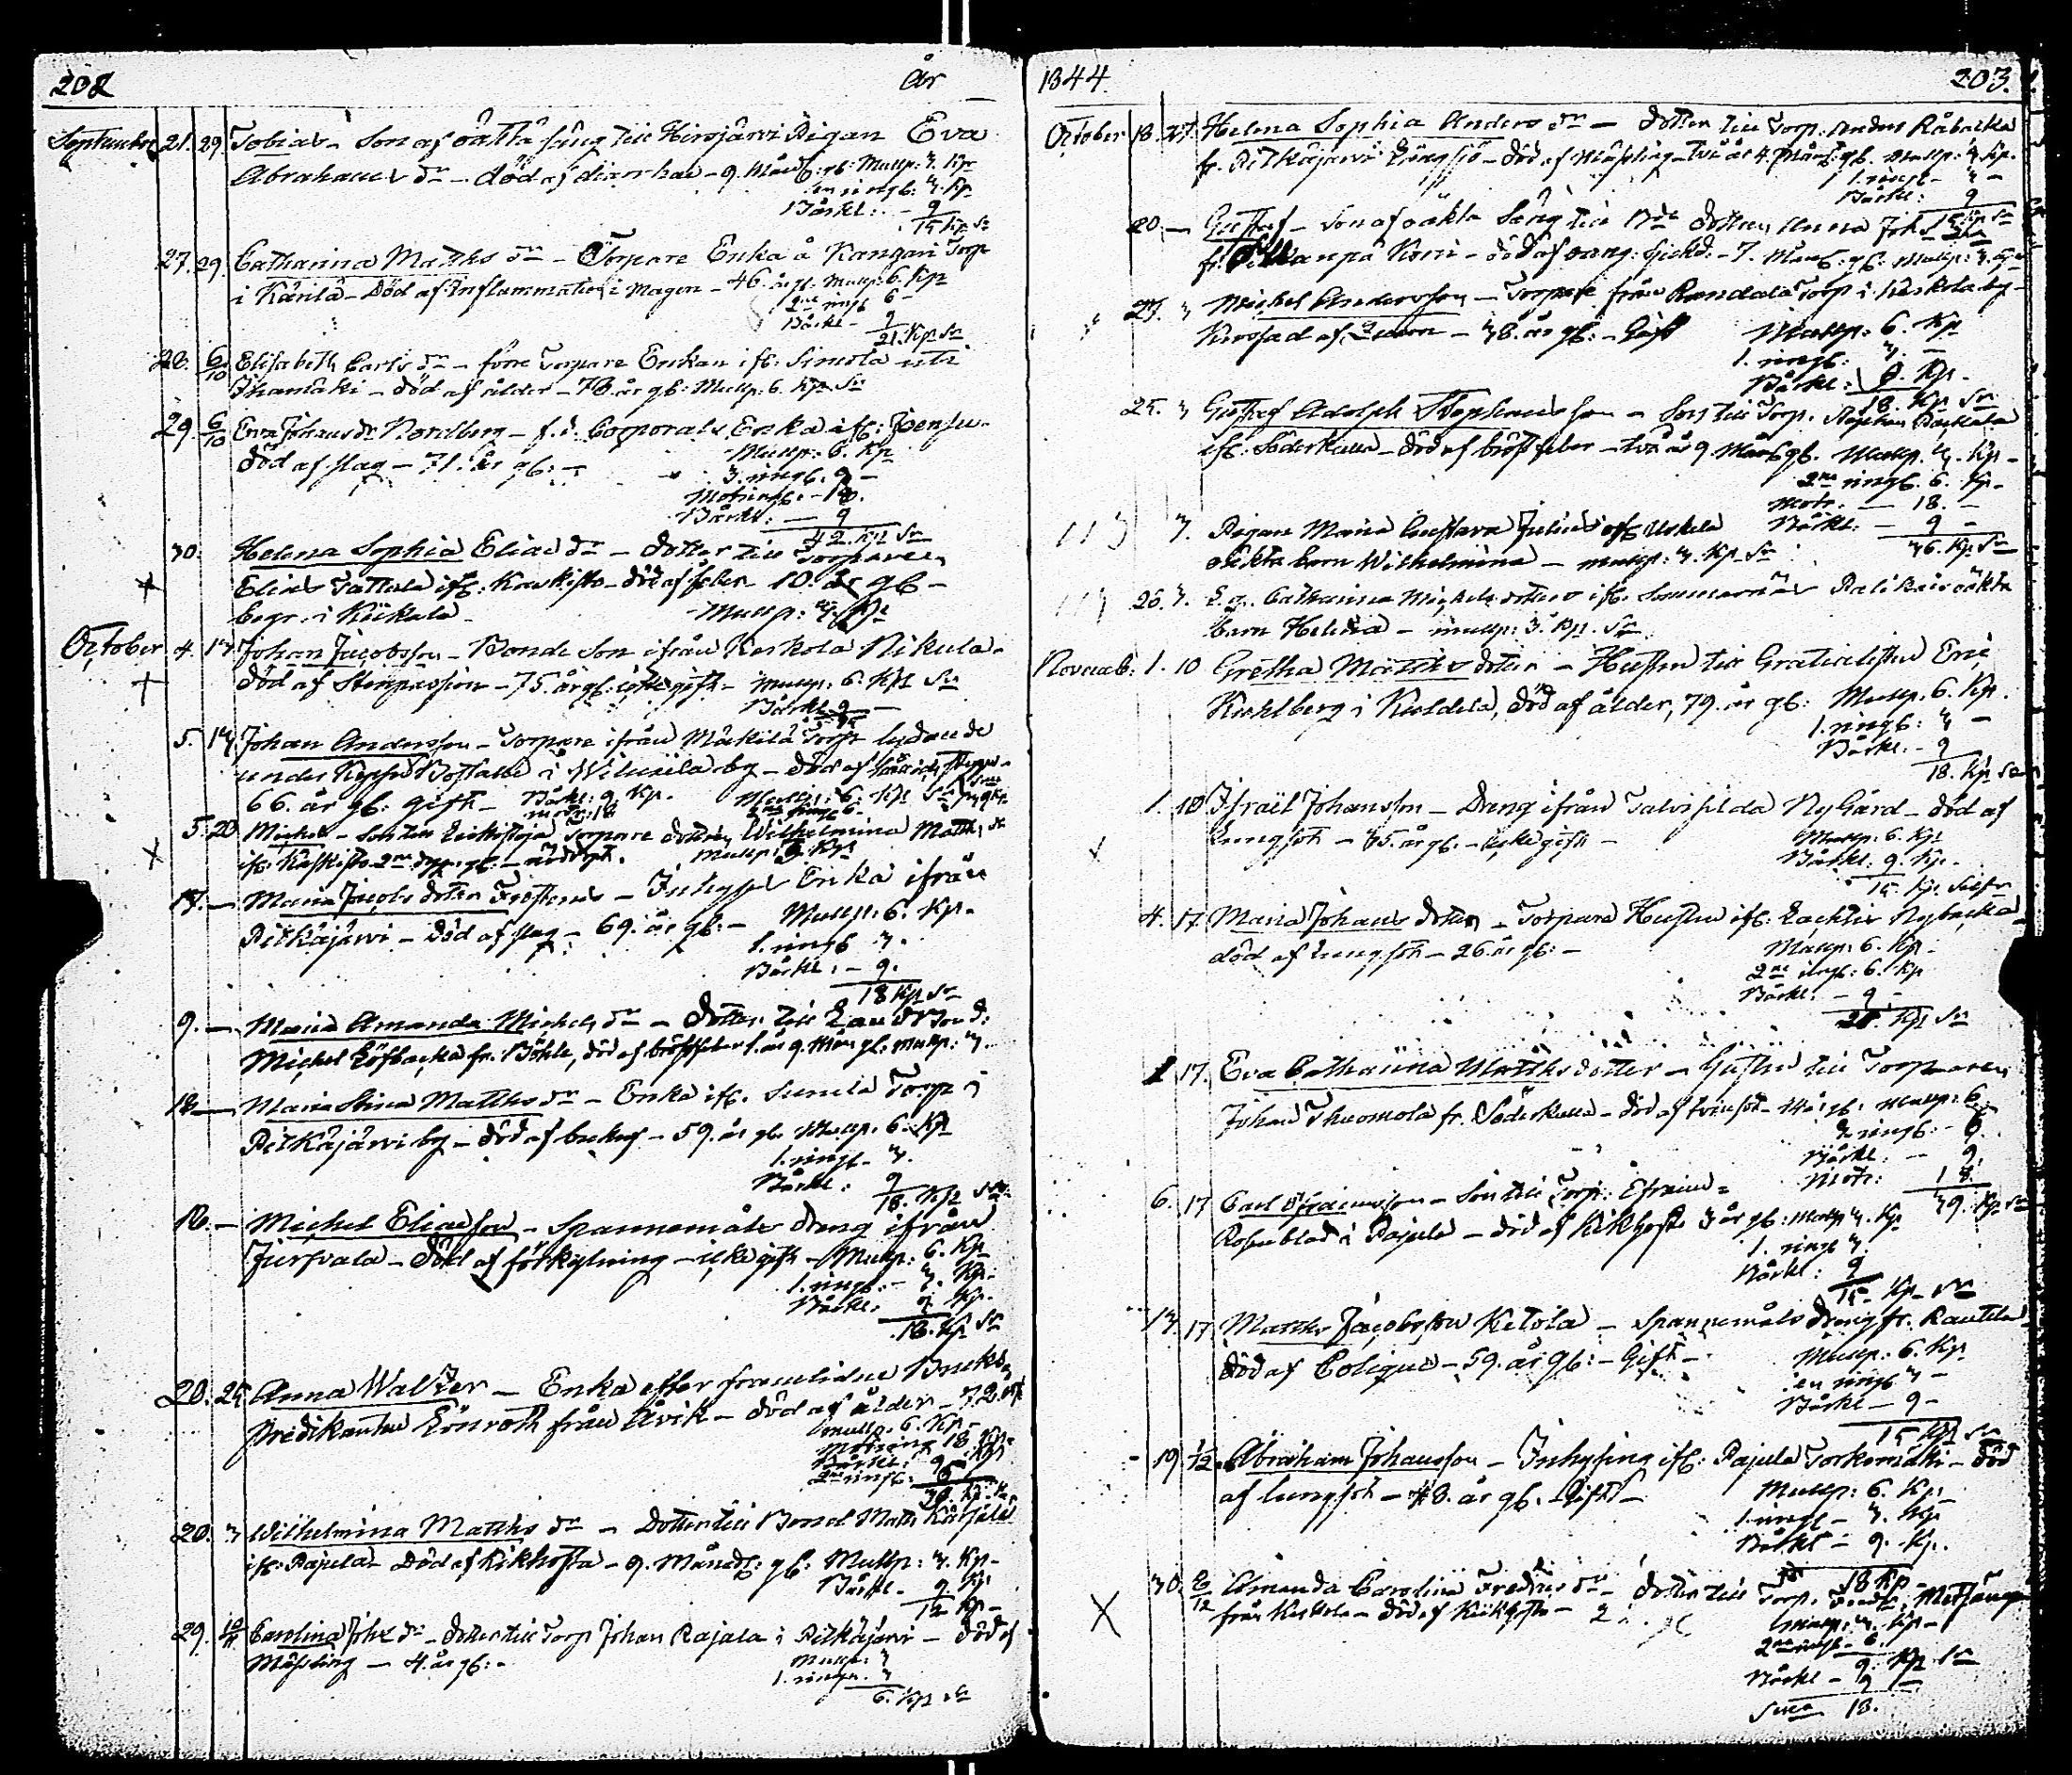 202 År
September 21. 29. Tobias - Son af oäkta säng till Hirsjärvi Pigan Eva
Abrahams dr - död af diarrhae - 9. Månd: gl: Mullp: 3. Kp
en ringl: 3. Kp
Bårkl: - 9
15 Kp Sr
27. 29. Catharina Matths dr - Torpare Enka å Kangari Torp
i Kärilä - Död af Inflammation i Magen - 46. år gl. Mullp: 6. Kp
2ne ringl 6 -
Bårkl - 9
21. Kp Sr
28. 6/10 Elisabeth Carls dr - före Torpare Enkan ifr: Simola uti
- död af ålder - 78. år gl: Mullp: 6. Kp Sr
29. 6/10 Eva Johans dr Nordberg - f. d. Corporals Enka ifr: Joensu -
död af slag - 71. år gl: - Mullp: 6. Kp
3. ringl. 9 -
Motringl. - 18.
Bårkl: - 9
42. Kp Sr
30. Helena Sophia Elias dr - dotter till Torparen
Elias Tattula ifr: Kaukisto - död af feber 10. år gl -
begr. i Kiikala - Mullp: 3 Kp
October 4. 13 Johan Jacobsson - Bonde Son ifrån Keskola Nikula -
död af - 75. år gl: - Mullp: 6. Kp Sr
Bårkl 9 -
5. 13 Johan Andersson - Torpare ifrån Mäkilä Torp lydande
under Boställe i by - död af
66. år gl: gift - Bårkl: 9 Kp. Mullp: 6. Kp Sr
5. 20 Michel - son till Torpare dottren Wilhelmina Matths dr
ifr: Kaskisto 2ne dgr. gl: - nöddöpt. Mullp: 3. Kp
- Maria Jacobs dotter - Inhyses Enka ifrån
Pitkäjärvi - död af slag - 69. år gl: - Mullp: 6. Kp.
1. ringl 3.
Bårkl: - 9.
18 Kp Sr
9. - Maria Amanda Michels dr - dotter till Landbond:
Michel Löfbacka fr. Böhle, död af bröstfeber 1. år 9. Mån gl: Mullp: 3.
12 - Maria Stina Matths dr - Enka ifr. Torp i
Pitkäjärvi by - död af - 59. år gl. Mullp. 6. Kp
1. ringl - 3.
Bårkl: 9
18. Kp Sr
16. - Michel Eliasson - Spannemåls dreng ifrån
Jursvala - död af förkylning - icke gift - Mullp: 6. Kp
1. ringl: - 3. Kp:
Bårkl: 9 Kp.
18. Kp Sr
20. 25 Anna Walker - Enka efter foremlidne Bruks
Predikanten Lönroth från Åvik - död af ålder - 72. år
Mullp. 6. Kp -
Motring 18. Kp.
Bårkl: 9 Kp
2ne ringl: 6
39. Kp. Sr
20. 3 Wilhelmina Matths dr - dotter till Bond Matts
ifr: Pajula - Död af Kikhosta - 9. Månader gl: Mullp: 3. Kp -
Bårkl - 9 Kp
12 Kp -
29. 10/11 Carolina Johs dr - dotter till Torp Johan Rajala i Pitkäjärvi - död af
Mässling - 4. år gl: - Mullp: 3
1. ringn. 3
6. Kp Sr
1844. 203.
October 18. 27. Helena Sophia Anders dr - dotter till Torp: Anders Råbacka
fr. Pitkäjärvi Långsjö - död af Mässling - två år 4. Mån: gl. Mullp: 3 Kp.
1. ringl - 3 -
Bårkl: 9
15 Kp Sr
20. - Gustaf - son af oäkta säng till Bde dottren Anna Johs
fr. - död af - 7. Mån: gl: Mullp: 3. Kp
23. 3 Michel Andersson - Torpare från Randala Torp i Keskola by -
Krossad af - 38. år gl: - Gift Mullp: 6. Kp
1. ringl: 3. -
Bårkl: 9. Kp.
18. Kp Sr
25. 3 Gustaf Adolph Stephansson - Son till Torp. Stephan Backala
ifr: Söderkulla - död af bröstfeber - två år 9. Mån gl. Mullp. 3. Kp -
2ne ringl. 6. Kp -
Motr. - 18. -
Bårkl: - 9 -
36. Kp. Sr
7. Pigan Maria Gustava Julius ifr: Uskela
oäkta barn Wilhelmina - mullp: 3. Kp. Sr
26. 3. Catharina Michels dotters ifr. oäkta
barn Helena - mullp: 3. Kp. Sr
Novemb: 1. 10 Gretha Matths dotter - Hustru till Gratialisten Eric
Kihlberg i Koldela, död af ålder, 79. år gl: Mullp. 6. Kp.
1. ringl: 3 -
Bårkl. - 9
18. Kp Sr
1. 10 Israël Johansson - Dreng ifrån Talvisilda Ny Gård - död af
Lungsot - 35. år gl. - icke gift - Mullp. 6. Kp
Bårkl. 9. Kp. -
15 Kp. Silfr
4. 17 Maria Johans dotter - Torpare Hustru ifr: Lachtis Nybacka
död af lungsot - 26. år gl: - Mullp: 6. Kp -
2ne ringl: 6. Kp
Bårkl: - 9 -
21. Kp Sr
1 17. Eva Catharina Matths dotter - Hustru till Torparen
Johan Thuomola fr. Söderkulla - död af tvinsot - år gl: Mullp: 6.
2 ringl: - 6.
Bårkl: - 9.
Motr: 18.
39. Kp Sr
6. 17 Carl Efraimsson - Son till Torp: Efraim
Rosenblad i Pajula - död af Kikhosta 3 år gl: Mullp 3. Kp
1. ringl 3.
Bårkl: 9
15. Kp Sr
13. 17 Matths Jacobsson Ketola - Spannemåls dreng fr. Rautela
död af Colique - 59. år gl: - Gift - Mullp: 6. Kp
en ringl 3 -
Bårkl - 9 -
15 Kp Sr
19 1/12 Abraham Johansson - Inhysing ifr: Pajula Torkomäki - död
af lungsot - 48. år gl. - Gift - Mullp: 6. Kp
1. ringl - 3. Kp
Bårkl - 9. Kp.
18 Kp -
30. 8/12 Amanda Carolina Fredrics dr - dotter till Torp.
från Keskola - död af Kikhosta - 2 Mullp: 3. Kp -
2ne ringl - 6.
Bårkl - 9
Sma 18.